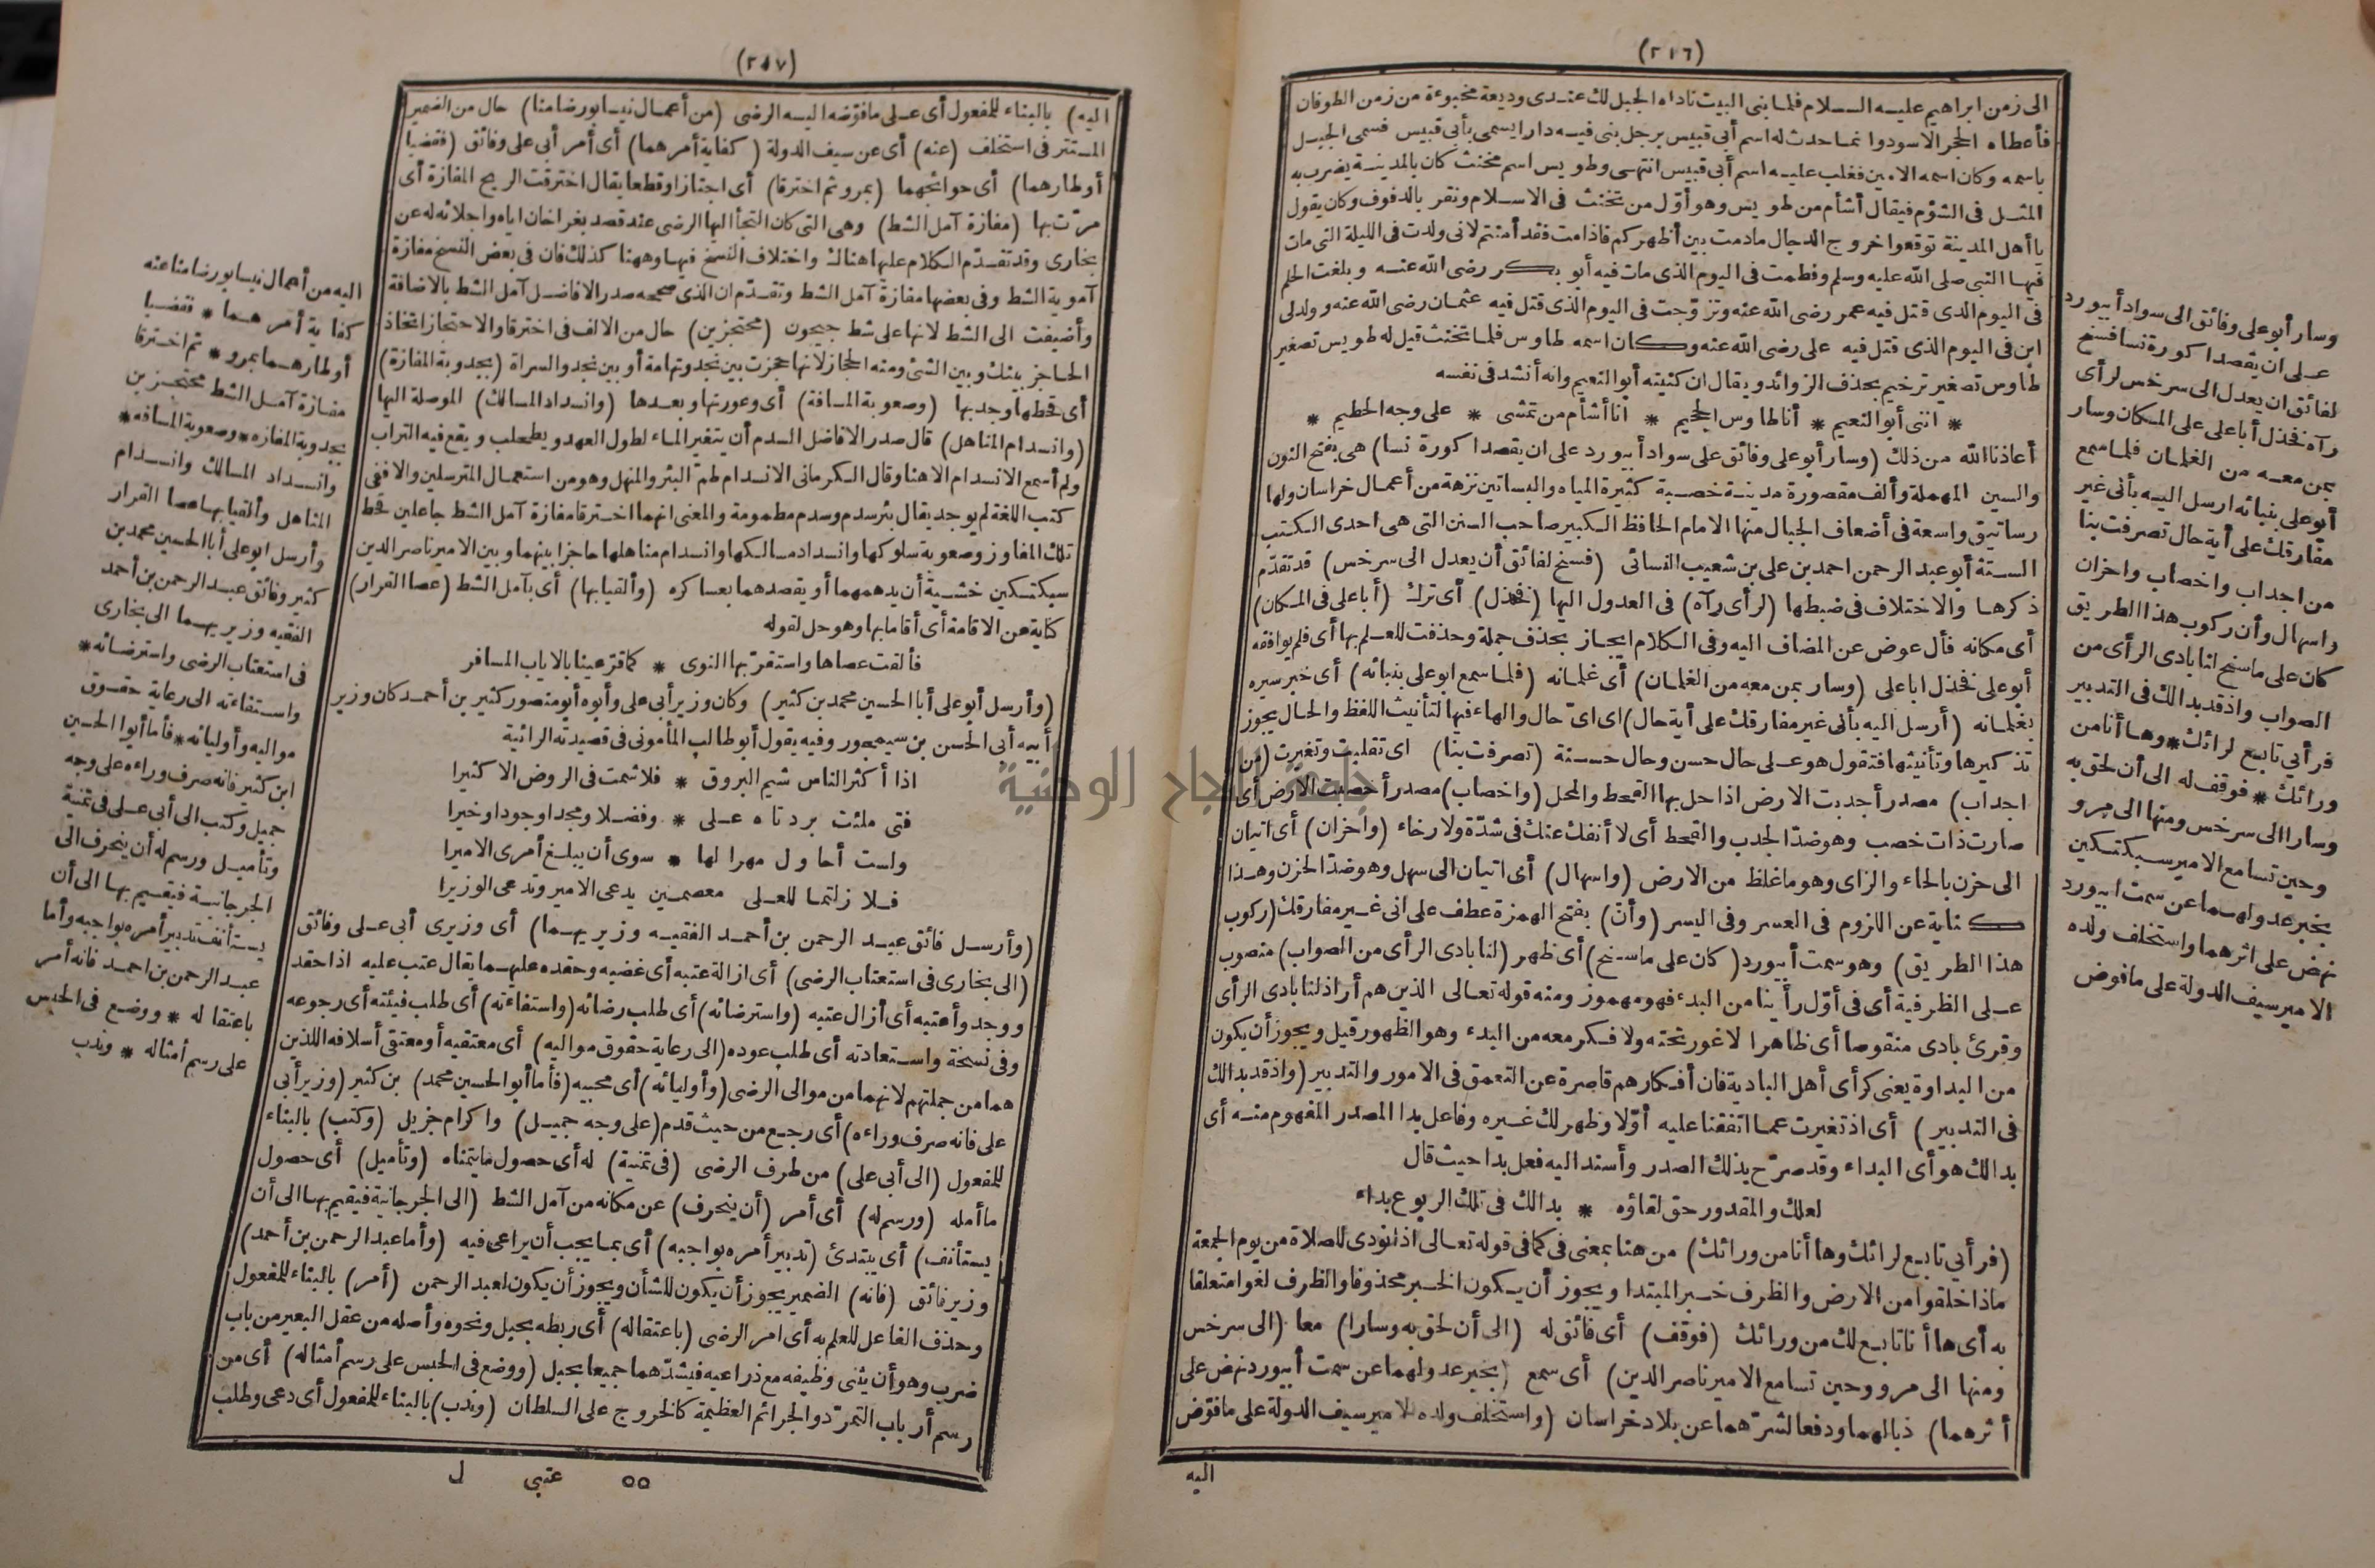 (٢١٦)
الى زمن ابراهيم عليه السلام فلما بنى البيت ناداه الجبل لك عندى وديعة مخبوءة من زمن الطوفان
فأعطاه الحجر الاسود وانما حدث له اسم أبى قبيس برجل بنى فيه دارا يسمى بأبى قبيس فسمى الجبل
باسمه وكان اسمه الامين فغلب عليه اسم أبى قبيس انتهى وطويس اسم مخنث كان بالمدينة يضرب به
المثل فى الشؤم فيقال أشأم من طويس وهو أول من تخنث فى الاسلام ونقر بالدفوف وكان يقول
يا أهل المدينة توقعوا خروج الدجال مادمت بين أظهركم فاذا مت فقد أمنتم لانى ولدت فى الليلة التى مات
فيها النبى صلى الله عليه وسلم وفطمت فى اليوم الذى مات فيه أبو بكر رضى الله عنه وبلغت الحلم
فى اليوم الذى قتل فيه عمر رضى الله عنه وتزوّجت فى اليوم الذى قتل فيه عثمان رضى الله عنه وولد لى
ابن فى اليوم الذى قتل فيه على رضى الله عنه وكان اسمه طاوس فلما تخنث قيل له طويس تصغير
طاوس تصغير ترخيم بحذف الزوائد ويقال ان كنيته أبو النعيم وانه أنشد فى نفسه
* اننى أبو النعيم * أنا طاوس الجحيم * أنا أشأم من تمشى * على وجه الحطيم *
أعاذنا الله من ذلك (وسار أبو على وفائق على سواد أبيورد على ان يقصدا كورة نسا) هى بفتح النون
والسين المهملة وألف مقصورة مدينة خصبة كثيرة المياه والبساتين نزهة من أعمال خراسان ولها
رساتيق واسعة فى أضعاف الجبال منها الامام الحافظ الكبير صاحب السنن التى هى احدى الكتب
الستة أبو عبد الرحمن احمد بن على بن شعيب النسائى (فسنح لفائق أن يعدل الى سرخس) قد تقدّم
ذكرها والاختلاف فى ضبطها (لرأى رآه) فى العدول اليها (فخذل) أى ترك (أبا على فى المكان)
أى مكانه فأل عوض عن المضاف اليه وفى الكلام ايجاز بحذف جملة وحذفت للعلم بها أى فلم يوافقه
أبو على فخذل ابا على (وسار بمن معه من الغلمان) أى غلمانه (فلما سمع ابو على بنبائه) أى خبر سيره
بغلمانه (أرسل اليه بأنى غير مفارقك على أية حال) اى اىّ حال والهاء فيها لتأنيث اللفظ والحال يجوز
تذكيرها وتأنيثها فتقول هو على حال حسن وحال حسنة (تصرفت بنا) اى تقلبت وتغيرت (من
اجداب) مصدر أجدبت الارض اذا حل بها القحط والمحل (واخصاب) مصدر أخصبت الارض أى
صارت ذات خصب وهو ضدّ الجدب والقحط أى لا أنفك عنك فى شدّة ولا رخاء (واخزان) أى اتيان
الى حزن بالحاء والزاى وهو ما غلظ من الارض (واسهال) أى اتيان الى سهل وهو ضدّ الحزن وهذا
كناية عن اللزوم فى العسر وفى اليسر (وأن) بفتح الهمزة عطف على انى غير مفارقك (ركوب
هذا الطريق) وهو سمت أبيورد (كان على ما سنح) أى ظهر (لنا بادى الرأى من الصواب) منصوب
على الظرفية أى فى أوّل رأينا من البدء فهو مهموز ومنه قوله تعالى الذين هم أراذلنا بادى الرأى
وقرئ بادى منقوصا أى ظاهرا لا غور تحته ولا فكر معه من البدء وهو الظهور قيل ويجوز أن يكون
من البداوة يعنى كرأى أهل البادية فان أفكارهم قاصرة عن التعمق فى الامور والتدبير (واذ قد بدا لك
فى التدبير) أى اذ تغيرت عما اتفقنا عليه أوّلا وظهر لك غيره وفاعل بدا المصدر المفهوم منه أى
بدا لك هو أى البداء وقد صرّح بذلك المصدر وأسند اليه فعل بدا حيث قال
لعلك والمقدور حق لقاؤه * بدا لك فى تلك الربوع بداء
(فرأيى تابع لرائك وها أنا من ورائك) من هنا بمعنى فى كما فى قوله تعالى اذا نودى للصلاة من يوم الجمعة
ماذا خلقوا من الارض والظرف خبر المبتدا ويجوز أن يكون الخبر محذوفا والظرف لغوا متعلقا
به أى ها أنا تابع لك من ورائك (فوقف) أى فائق له (الى أن لحق به وسارا) معا (الى سرخس
ومنها الى مرو وحين تسامع الامير ناصر الدين) أى سمع (بخبر عدولهما عن سمت أبيورد نهض على
أثرهما) ذبا لهما ودفعا لشرّهما عن بلاد خراسان (واستخلف ولده الامير سيف الدولة على ما فوّض
اليه
وسار أبو على وفائق الى سواد أبيورد
على ان يقصدا كورة نسا فسنح
لفائق ان يعدل الى سرخس لرأى
رآه فخذل أبا على على المكان وسار
بمن معه من الغلمان فلما سمع
أبو على بنبائه ارسل اليه بأنى غير
مفارقك على أية حال تصرفت بنا
من اجداب واخصاب واخزان
واسهال وأن ركوب هذا الطريق
كان على ما سنح لنا بادى الرأى من
الصواب واذ قد بدا لك فى التدبير
فرأيى تابع لرائك * وها أنا من
ورائك * فوقف له الى أن لحق به
وسارا الى سرخس ومنها الى مرو
وحين تسامع الامير سبكتكين
بخبر عدولهما عن سمت ابيورد
نهض على اثرهما واستخلف ولده
الامير سيف الدولة على ما فوض
(٢١٧)
اليه) بالبناء للمفعول أى على ما فوّضه اليه الرضى (من أعمال نيسابور ضامنا) حال من الضمير
المستتر فى استخلف (عنه) أى عن سيف الدولة (كفاية أمرهما) أى أمر أبى على وفائق (فقضيا
أوطارهما) أى حوائجهما (بمرو ثم اخترقا) أى اجتازا وقطعا يقال اخترقت الريح المفازة أى
مرّت بها (مفازة آمل الشط) وهى التى كان التجأ اليها الرضى عند قصد بغراخان اياه واجلائه له عن
بخارى وقد تقدّم الكلام عليها هنالك واختلاف النسخ فيها وههنا كذلك فان فى بعض النسخ مفازة
آموية الشط وفى بعضها مفازة آمل الشط وتقدّم ان الذى صححه صدر الافاضل آمل الشط بالاضافة
وأضيفت الى الشط لانها على شط جيحون (محتجزين) حال من الالف فى اخترقا والاحتجاز اتخاذ
الحاجز بينك وبين الشئ ومنه الحجاز لانها حجزت بين نجد وتهامة أو بين نجد والسراة (بجدوبة المفازة)
أى قحطها وجدبها (وصعوبة المسافة) أى وعورتها وبعدها (وانسداد المسالك) الموصلة اليها
(وانسدام المناهل) قال صدر الافاضل السدم أن يتغير الماء لطول العهد ويطحلب ويقع فيه التراب
ولم أسمع الانسدام الا هنا وقال الكرمانى الانسدام طمّ البئر والمنهل وهو من استعمال المترسلين والا ففى
كتب اللغة لم يوجد يقال بئر سدم وسدم مطمومة والمعنى انهما اخترقا مفازة آمل الشط جاعلين قحط
تلك المفاوز وصعوبة سلوكها وانسداد مسالكها وانسدام مناهلها حاجزا بينهما وبين الامير ناصر الدين
سبكتكين خشية أن يدهمهما أو يقصدهما بعساكره (وألقيا بها) أى بآمل الشط (عصا القرار)
كناية عن الاقامة أى أقاما بها وهو حل لقوله
فألقت عصاها واستقرّ بها النوى * كما قرّ عينا بالاياب المسافر
(وأرسل أبو على أبا الحسين محمد بن كثير) وكان وزير أبى على وأبوه أبو منصور كثير بن أحمد كان وزير
أبيه أبى الحسن بن سيمجور وفيه يقول أبو طالب المأمونى فى قصيدته الرائية
اذا أكثر الناس شيم البروق * فلا شمت فى الروض الا كثيرا
فتى ملئت بردتاه على * وفضلا ومجدا وجودا وخيرا
ولست أحاول مهرا لها * سوى أن يبلغ أمرى الاميرا
فلا زلتما للعلى معصمين يدعى الامير وتدعى الوزيرا
(وأرسل فائق عبد الرحمن بن أحمد الفقيه وزيريهما) أى وزيرى أبى على وفائق
(الى بخارى فى استعتاب الرضى) أى ازالة عتبه أى غضبه وحقده عليهما يقال عتب عليه اذا حقد
ووجد وأعتبه أى أزال عتبه (واسترضائه) أى طلب رضائه (واستفاءته) أى طلب فيئته أى رجوعه
وفى نسخة واستعادته أى طلب عوده (الى رعاية حقوق مواليه) أى معتقيه أو معتقى أسلافه اللذين
هما من جملتهم لانهما من موالى الرضى (وأوليائه) أى محبيه (فأما أبو الحسين محمد) بن كثير (وزير أبى
على فانه صرف وراءه) أى رجع من حيث قدم (على وجه جميل) واكرام جزيل (وكتب) بالبناء
للمفعول (الى أبى على) من طرف الرضى (فى تمنية) له أى حصول ما يتمناه (وتأميل) أى حصول
ما أمله (ورسم له) أى أمر (أن ينحرف) عن مكانه من آمل الشط (الى الجرجانية فيقيم بها الى أن
يستأنف) أى يبتدئ (تدبير أمره بواجبه) أى بما يجب أن يراعى فيه (وأما عبد الرحمن بن أحمد)
وزير فائق (فانه) الضمير يجوز أن يكون للشأن ويجوز أن يكون لعبد الرحمن (أمر) بالبناء للمفعول
وحذف الفاعل للعلم به أى امر الرضى (باعتقاله) أى ربطه بحبل ونحوه وأصله من عقل البعير من باب
ضرب وهو أن يثنى وظيفه مع ذراعيه فيشدّهما جميعا بحبل (ووضع فى الحبس على رسم أمثاله) أى من
رسم أرباب التمرّد والجرائم العظيمة كالخروج على السلطان (وندب) بالبناء للمفعول أى دعى وطلب
٥٥ عتبى ل
اليه من أعمال نيسابور ضامنا عنه
كفاية أمرهما * فقضيا
أوطارهما بمرو * ثم اخترقا
مفازة آمل الشط محتجزين
بجدوبة المفازه * وصعوبة المسافه *
وانسداد المسالك وانسدام
المناهل وألقيا بها عصا القرار
وأرسل ابو على أبا الحسين محمد بن
كثير وفائق عبد الرحمن بن أحمد
الفقيه وزيريهما الى بخارى
فى استعتاب الرضى واسترضائه *
واستفاءته الى رعاية حقوق
مواليه وأوليائه * فأما أبو الحسين
ابن كثير فانه صرف وراءه على وجه
جميل وكتب الى أبى على فى تمنية
وتأميل ورسم له أن ينحرف الى
الجرجانية فيقيم بها الى أن
يستأنف تدبير أمره بواجبه وأما
عبد الرحمن بن احمد فانه أمر
باعتقاله * ووضع فى الحبس
على رسم أمثاله * وندب
جامعة النجاح الوطنية